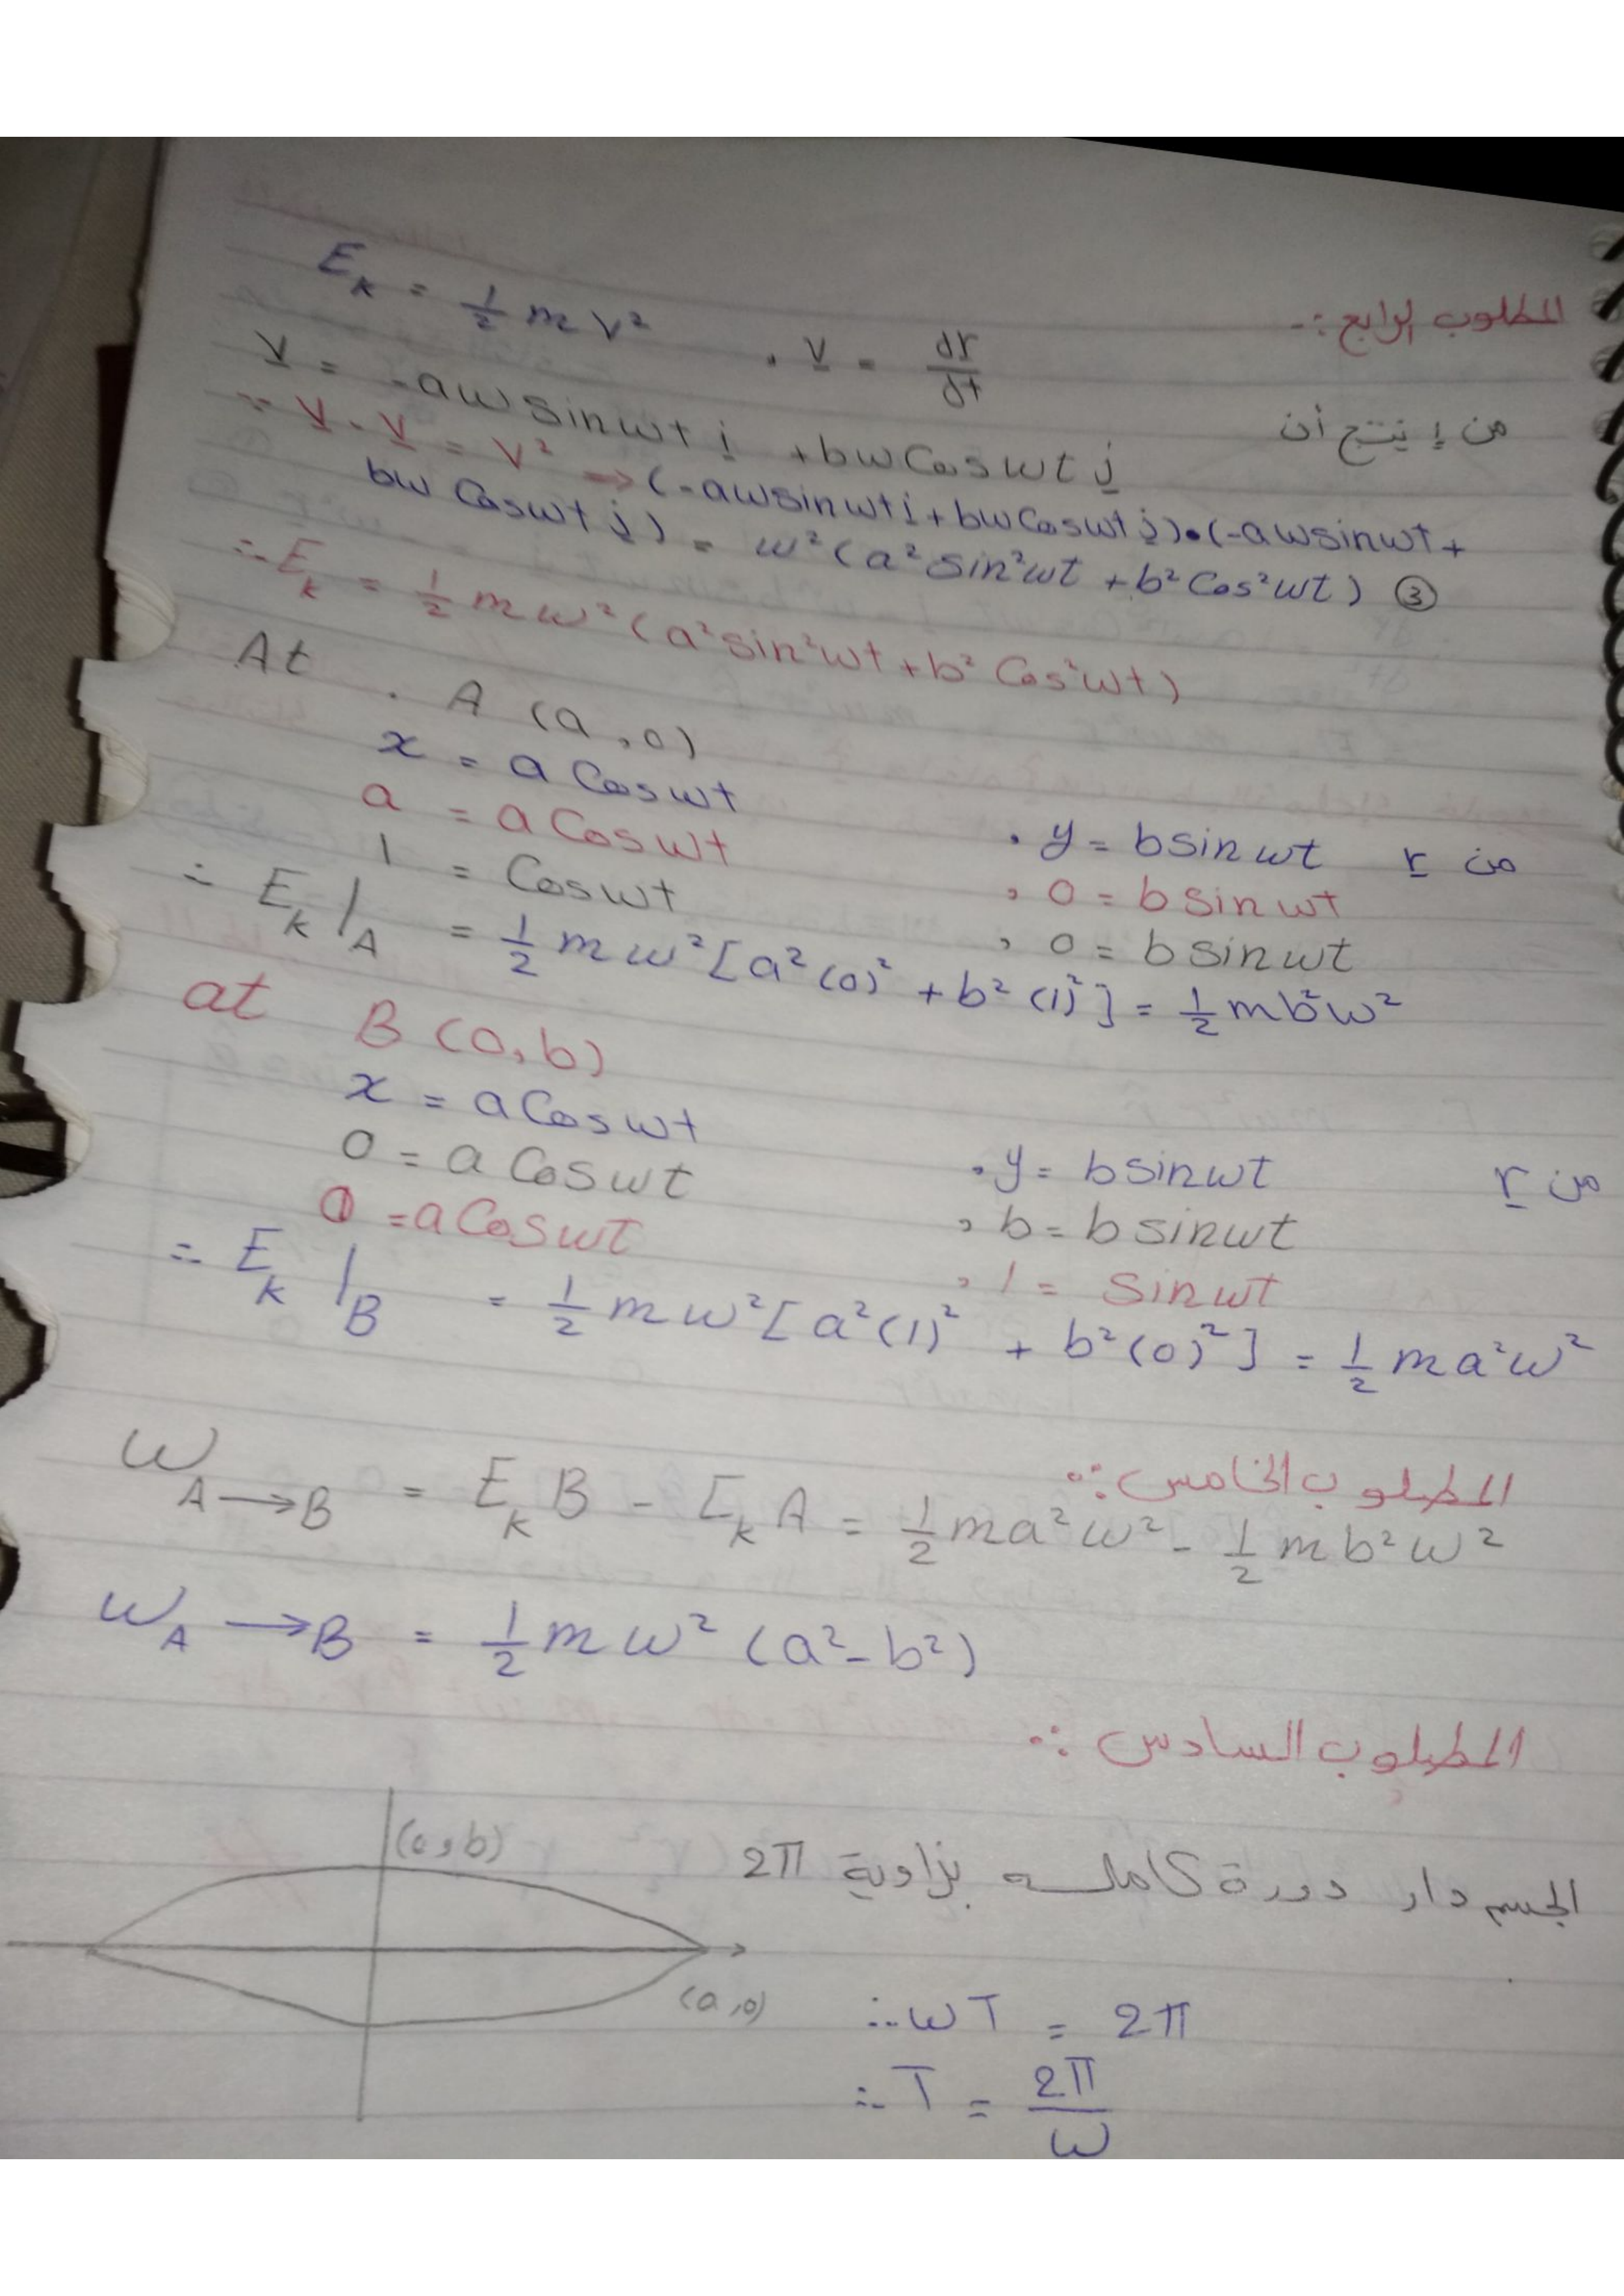 المطلوب الرابع :-
E_k = 1/2 m v² , v = dr/dt
من 1 ينتج أن
v = -aw sin wt i + bw Cos wt j
∵ v . v = v² ⇒ (-aw sin wt i + bw Cos wt j) • (-aw sin wt +
bw Cos wt j) = w² (a² sin² wt + b² Cos² wt) ③
∴ E_k = 1/2 m w² (a² sin² wt + b² Cos² wt)
At . A (a , 0)
x = a Cos wt , y = b sin wt من r
a = a Cos wt , 0 = b sin wt
1 = Cos wt , 0 = b sin wt
∴ E_k |_A = 1/2 m w² [a² (0)² + b² (1)²] = 1/2 m b² w²
at B (0, b)
x = a Cos wt , y = b sin wt من r
0 = a Cos wt , b = b sin wt
0 = a Cos wt , 1 = sin wt
∴ E_k |_B = 1/2 m w² [a² (1)² + b² (0)²] = 1/2 m a² w²
المطلوب الخامس :-
W_A→B = E_k B - E_k A = 1/2 m a² w² - 1/2 m b² w²
W_A→B = 1/2 m w² (a² - b²)
المطلوب السادس :-
(0, b)
الجسم دار دورة كاملـــه بزاوية 2π
(a, 0)
∴ wT = 2π
∴ T = 2π/w